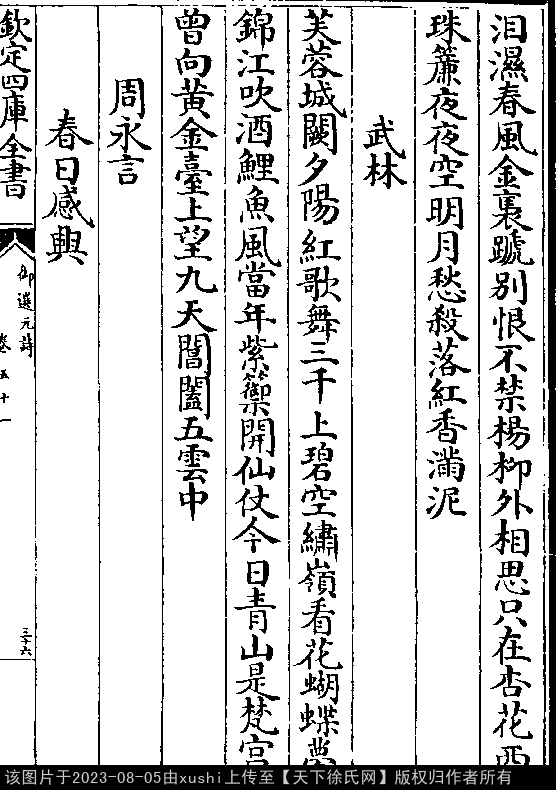 泪濕春風金裏蹏别恨不禁楊栁外相思只在杏花西
珠簾夜夜空明月愁殺落紅香滿泥
武林
芙蓉城闕夕陽紅歌舞三千上碧空繡嶺看花蝴蝶夢
錦江吹酒鯉魚風當年紫籞開仙仗今日青山是梵宫
曾向黃金臺上望九天閶闔五雲中
周永言
春日感興
欽定四庫全書
御選元詩
卷五十一
三十六
该图片于2023-08-05由xushi上传至【天下徐氏网】版权归作者所有